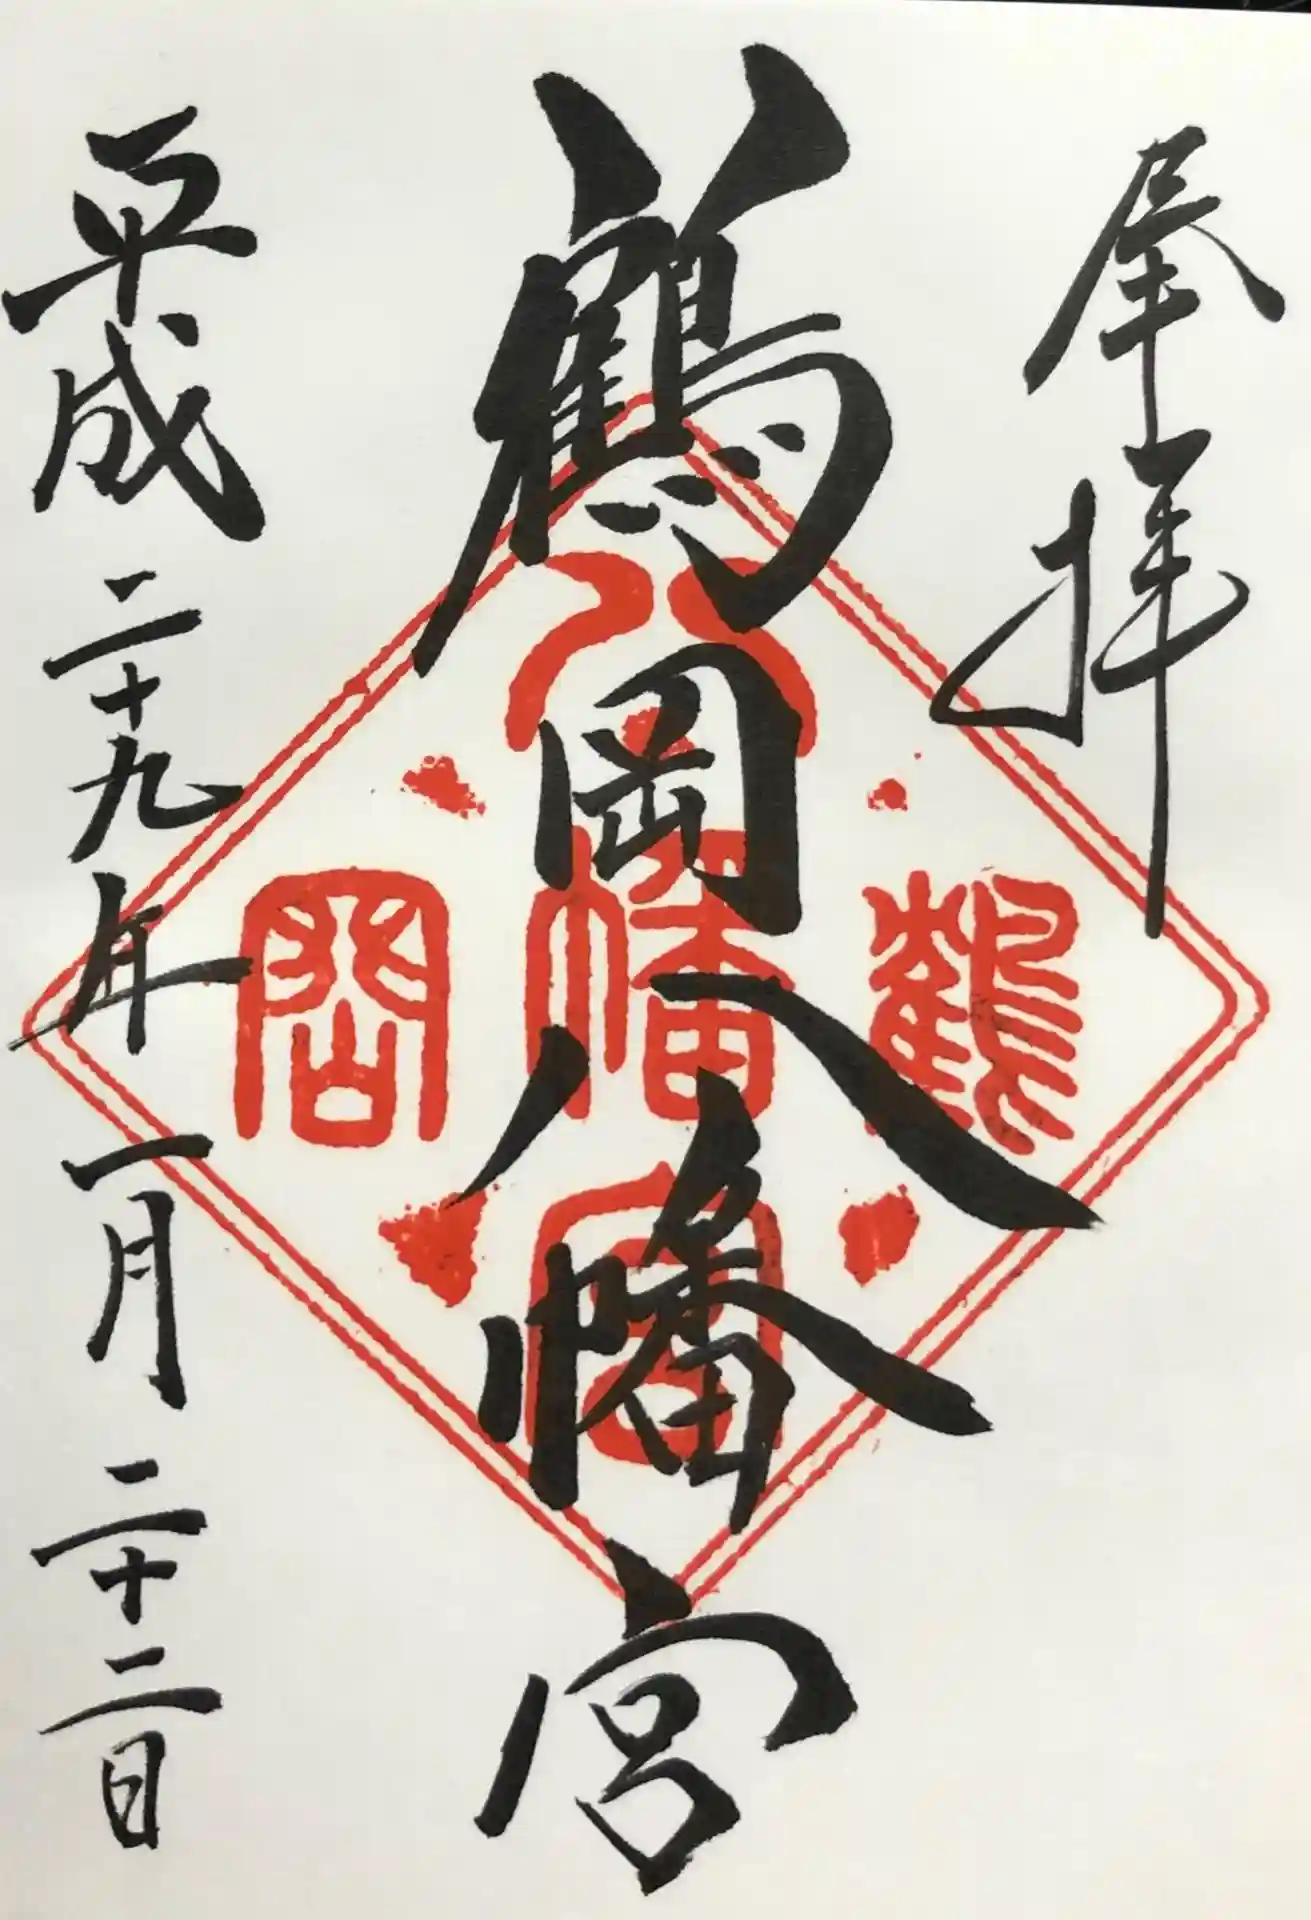 奉拝
鶴岡八幡宮
鶴
八幡宮
岡
平成二十九年一月二十二日